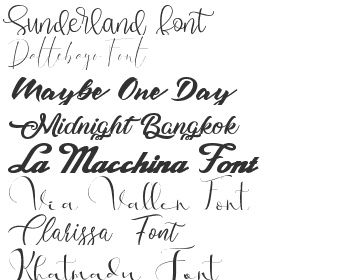 Sunderland font
Dattebayo Font
Maybe One Day
Midnight Bangkok
La Macchina Font
Via Vallen Font
Clarissa Font
Khatmadu Font